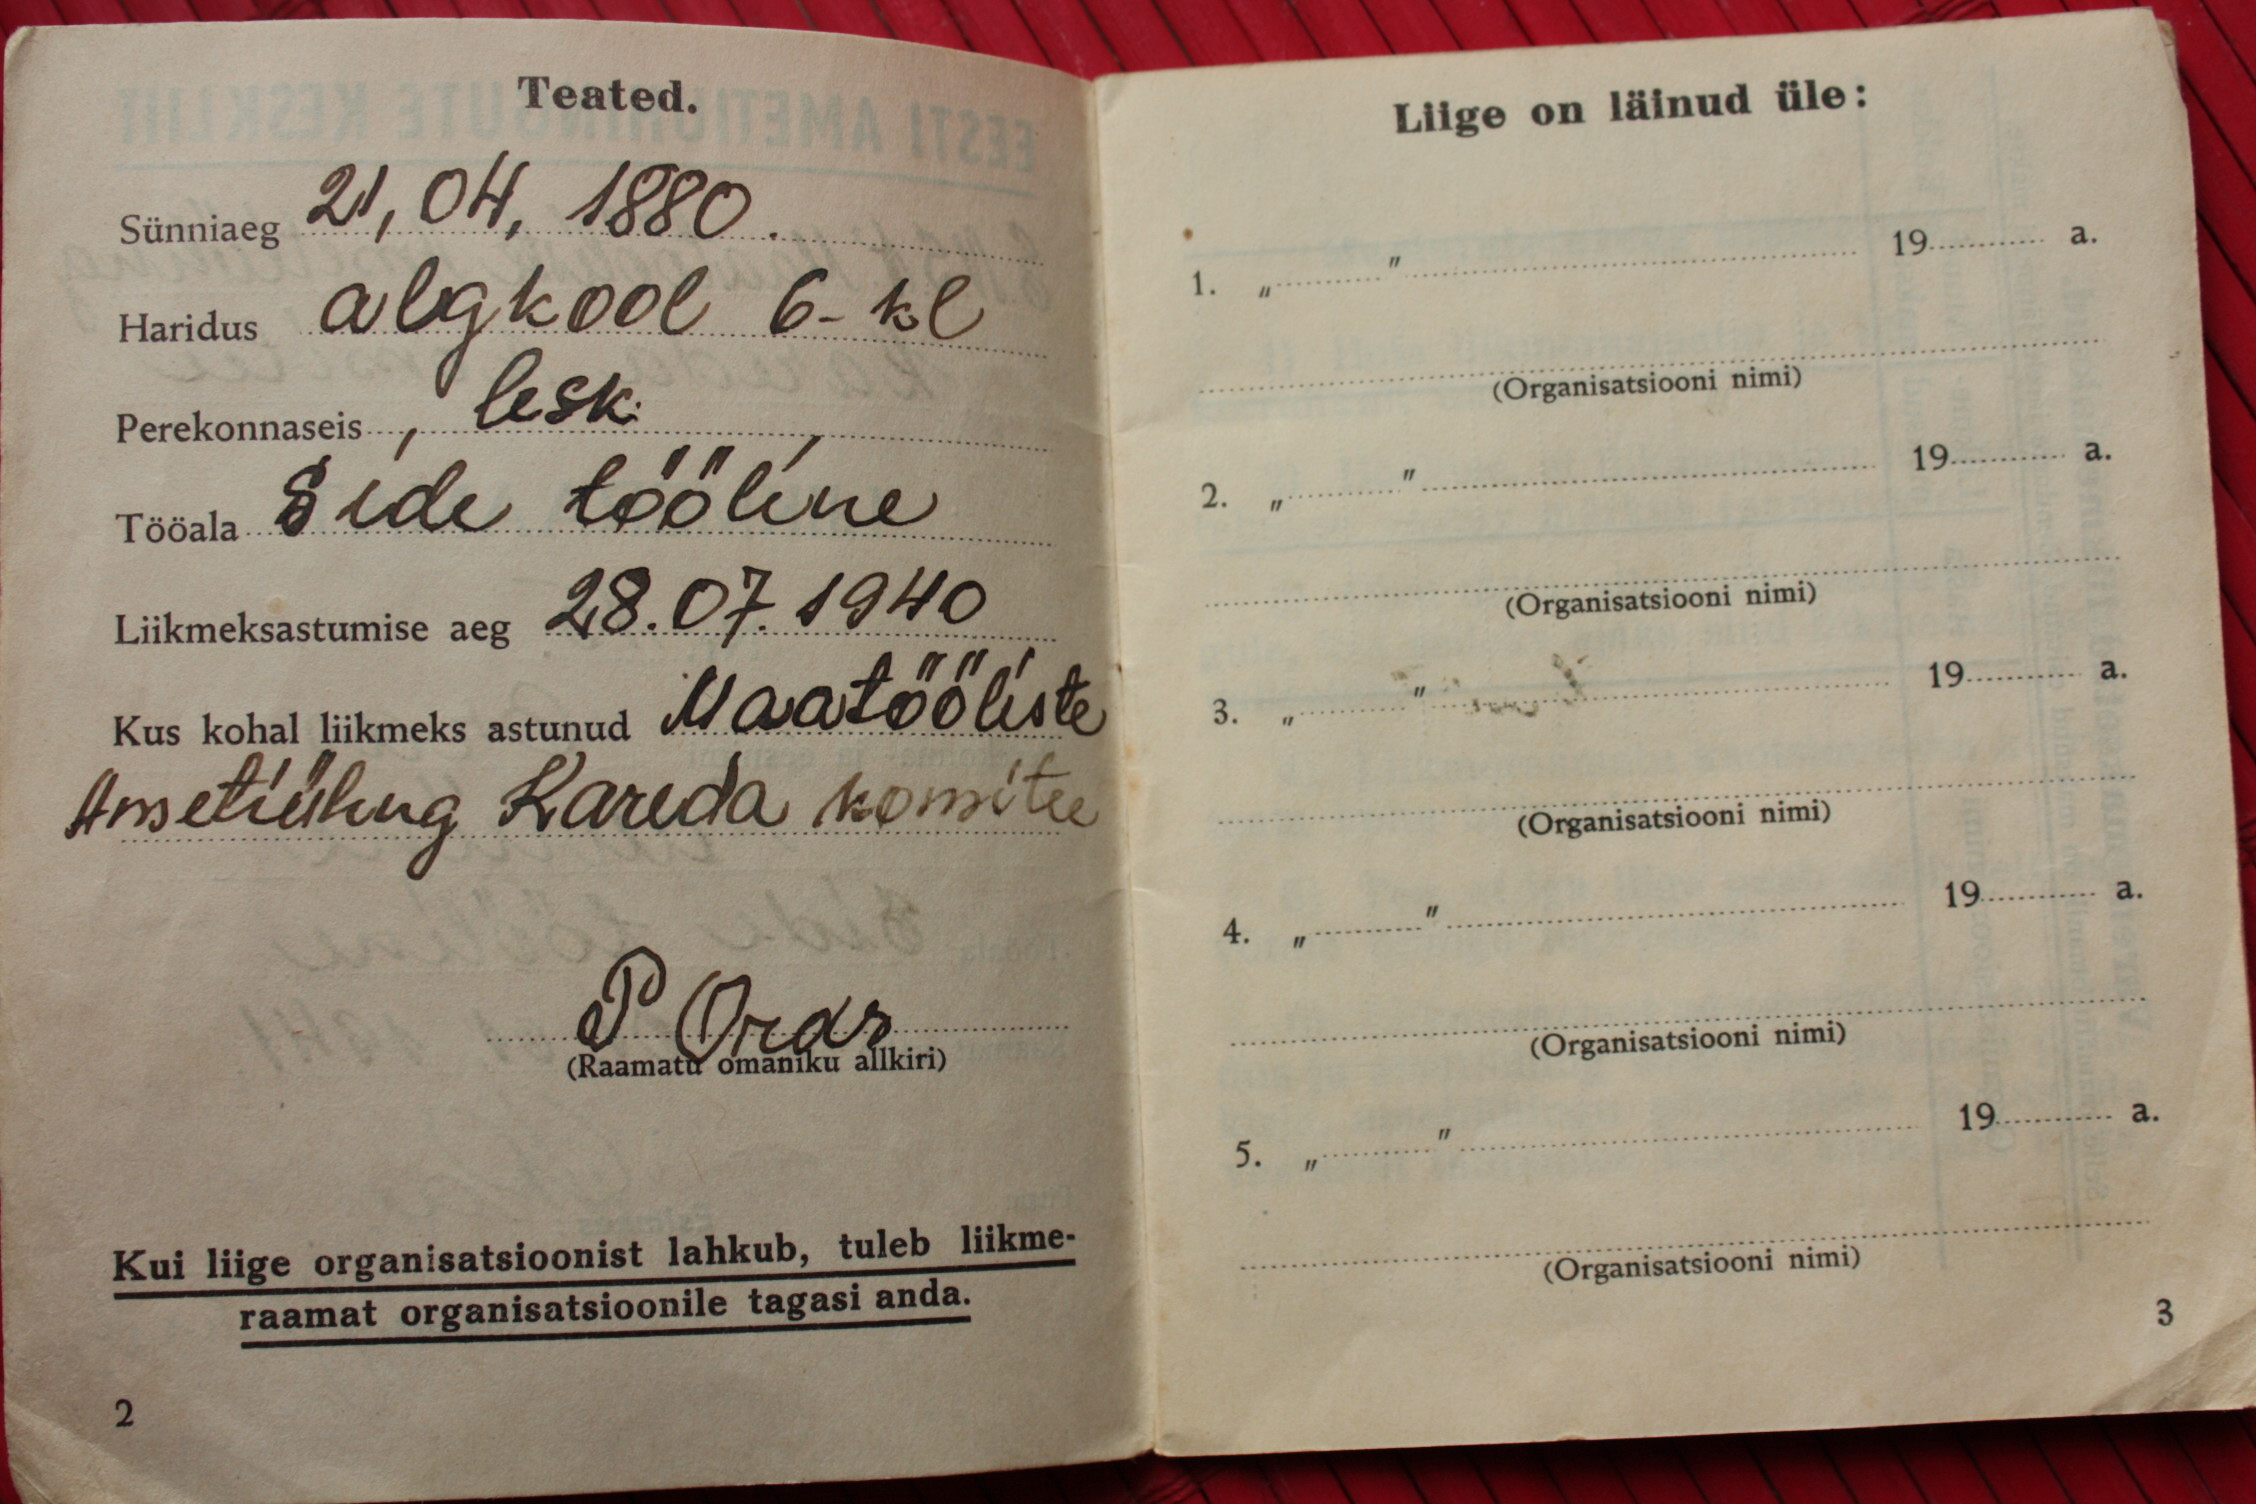 Teated.
Sünniaeg 21, 04, 1880.
Haridus algkool 6-kl
Perekonnaseis lesk.
Tööala Side tööline
Liikmeksastumise aeg 28.07.1940
Kus kohal liikmeks astunud Maatööliste
Ametiühing Kareda komitee
P Oras
(Raamatu omaniku allkiri)
Kui liige organisatsioonist lahkub, tuleb liikme-
raamat organisatsioonile tagasi anda.
2
Liige on läinud üle:
1. „..........." .......... 19.......... a.
(Organisatsiooni nimi)
2. „..........." .......... 19.......... a.
(Organisatsiooni nimi)
3. „..........." .......... 19.......... a.
(Organisatsiooni nimi)
4. „..........." .......... 19.......... a.
(Organisatsiooni nimi)
5. „..........." .......... 19.......... a.
(Organisatsiooni nimi)
3